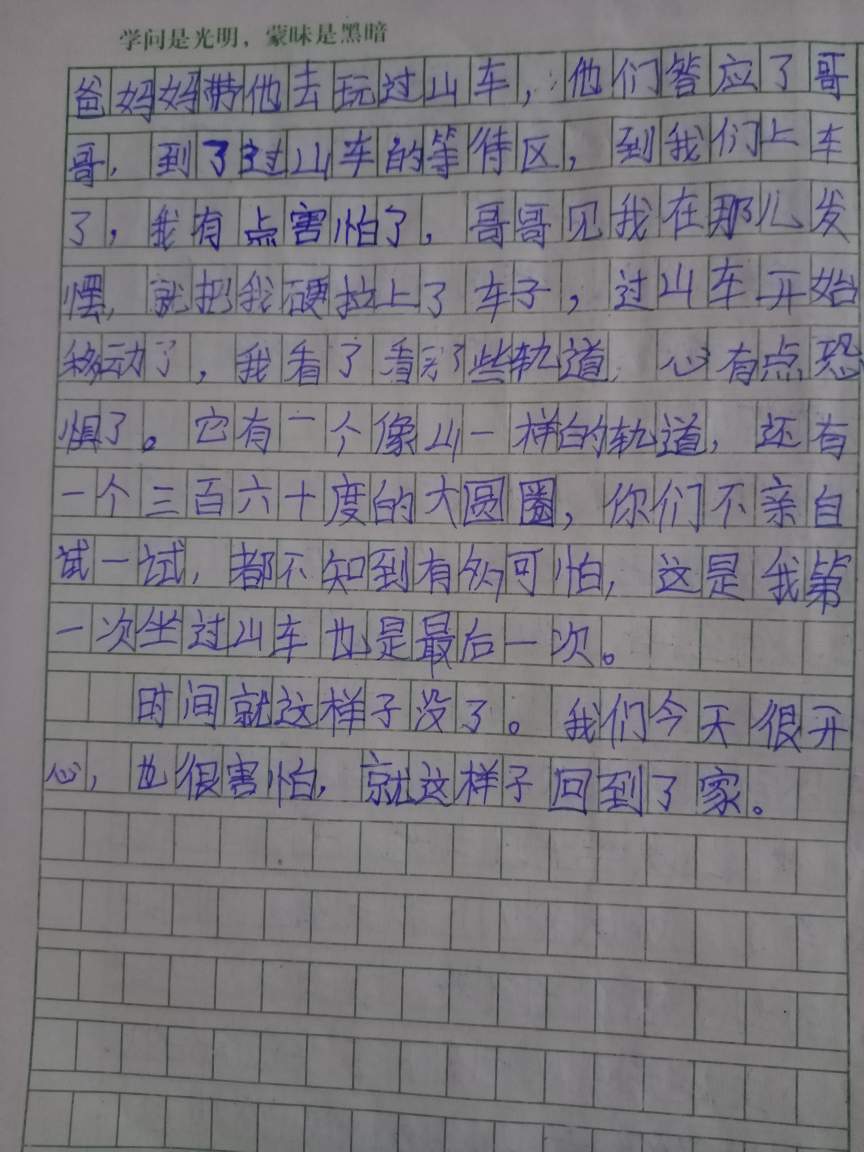 学问是光明，蒙昧是黑暗
爸妈妈带他去玩过山车，他们答应了哥
哥，到了过山车的等待区，到我们上车
了，我有点害怕了，哥哥见我在那儿发
愣，就把我硬拉上了车子，过山车开始
移动了，我看了看那些轨道，心有点恐
惧了。它有一个像山一样的轨道，还有
一个三百六十度的大圆圈，你们不亲自
试一试，都不知到有多可怕，这是我第
一次坐过山车也是最后一次。
时间就这样子没了。我们今天很开
心，也很害怕，就这样子回到了家。